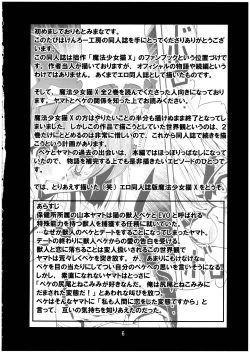 初めましておりもとみまなです。
このたびはけんろー工房の同人誌を手にとってくださりありがとうござ
います。
この同人誌は拙作「魔法少女猫X」のファンブックという位置づけで
す。作者当人が描いておりますが、オフィシャルの物語や続編という
わけではありません。あくまでエロ同人誌として描いたものです。
そして、魔法少女猫X全2巻を読んでくださった人向けになっており
ます。ヤマトとペケの関係を知った上でお読みください。
魔法少女猫Xの方はやりたいことの半分も描けぬまま終了となって
しまいました。しかしこの作品で描こうとしていた世界観というのは、2
巻だけにとどめるのは非常に惜しいので、これから同人誌で続きを描
こうという計画があります。
ペケとヤマトの過去の出会いは、本編ではほっぽりっぱなしになって
いたので、物語を補完する上でも是非描きたいエピソードのひとつで
す。
では、とりあえず描いた(笑)エロ同人誌版魔法少女猫Xをどうぞ。
あらすじ
保健所所属の山本ヤマトは猫の獣人ペケとEVOと呼ばれる
特殊能力を持つ獣人を捕獲する任務に就いていた。
なぜか獣人のペケとデートをすることになってしまったヤマト、
デートの終わりに獣人ペケからの愛の告白を受ける。
獣人と恋に落ちることは変人扱いされるこの世界観で
ヤマトは荒々しくペケを突き放す。が、あまりにもけなげな
ペケを目の当たりにし、ついに自分のペケへの思いを言いそうになる!
しかし、素直になれないヤマトはとっさに
「ペケの尻尾とねこみみが好きなだけだ!!俺は尻尾とねこみみに
だまされた変態だ!」とあわれな叫びを放つ。
ペケはそんなヤマトに「私も人間に恋をした変態ですから」と
言って、互いの気持ちを知りあえたのだった。
6